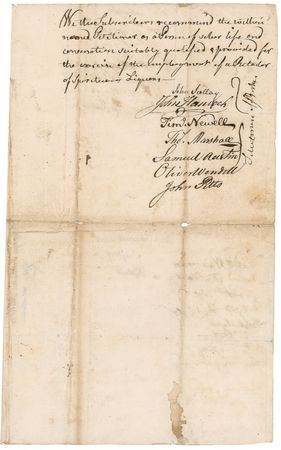 We the Subscribers recommend the within
named Petitioner as a Person of sober life and
conversation suitably qualified & provided for
the exercise of the employment of a Retailer
of Spirituous Liquors
John
John Hancock
Timo. Newell
Tho. Marshall
Samuel Austin
Oliver Wendell
John Pitts
Selectmen of Boston